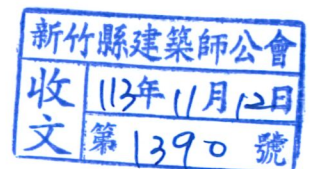 新竹縣建築師公會
收文
113年11月12日
第1390號